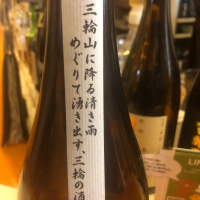 三輪山に降る清き雨
めぐりて湧き出す、三輪の酒
LIN